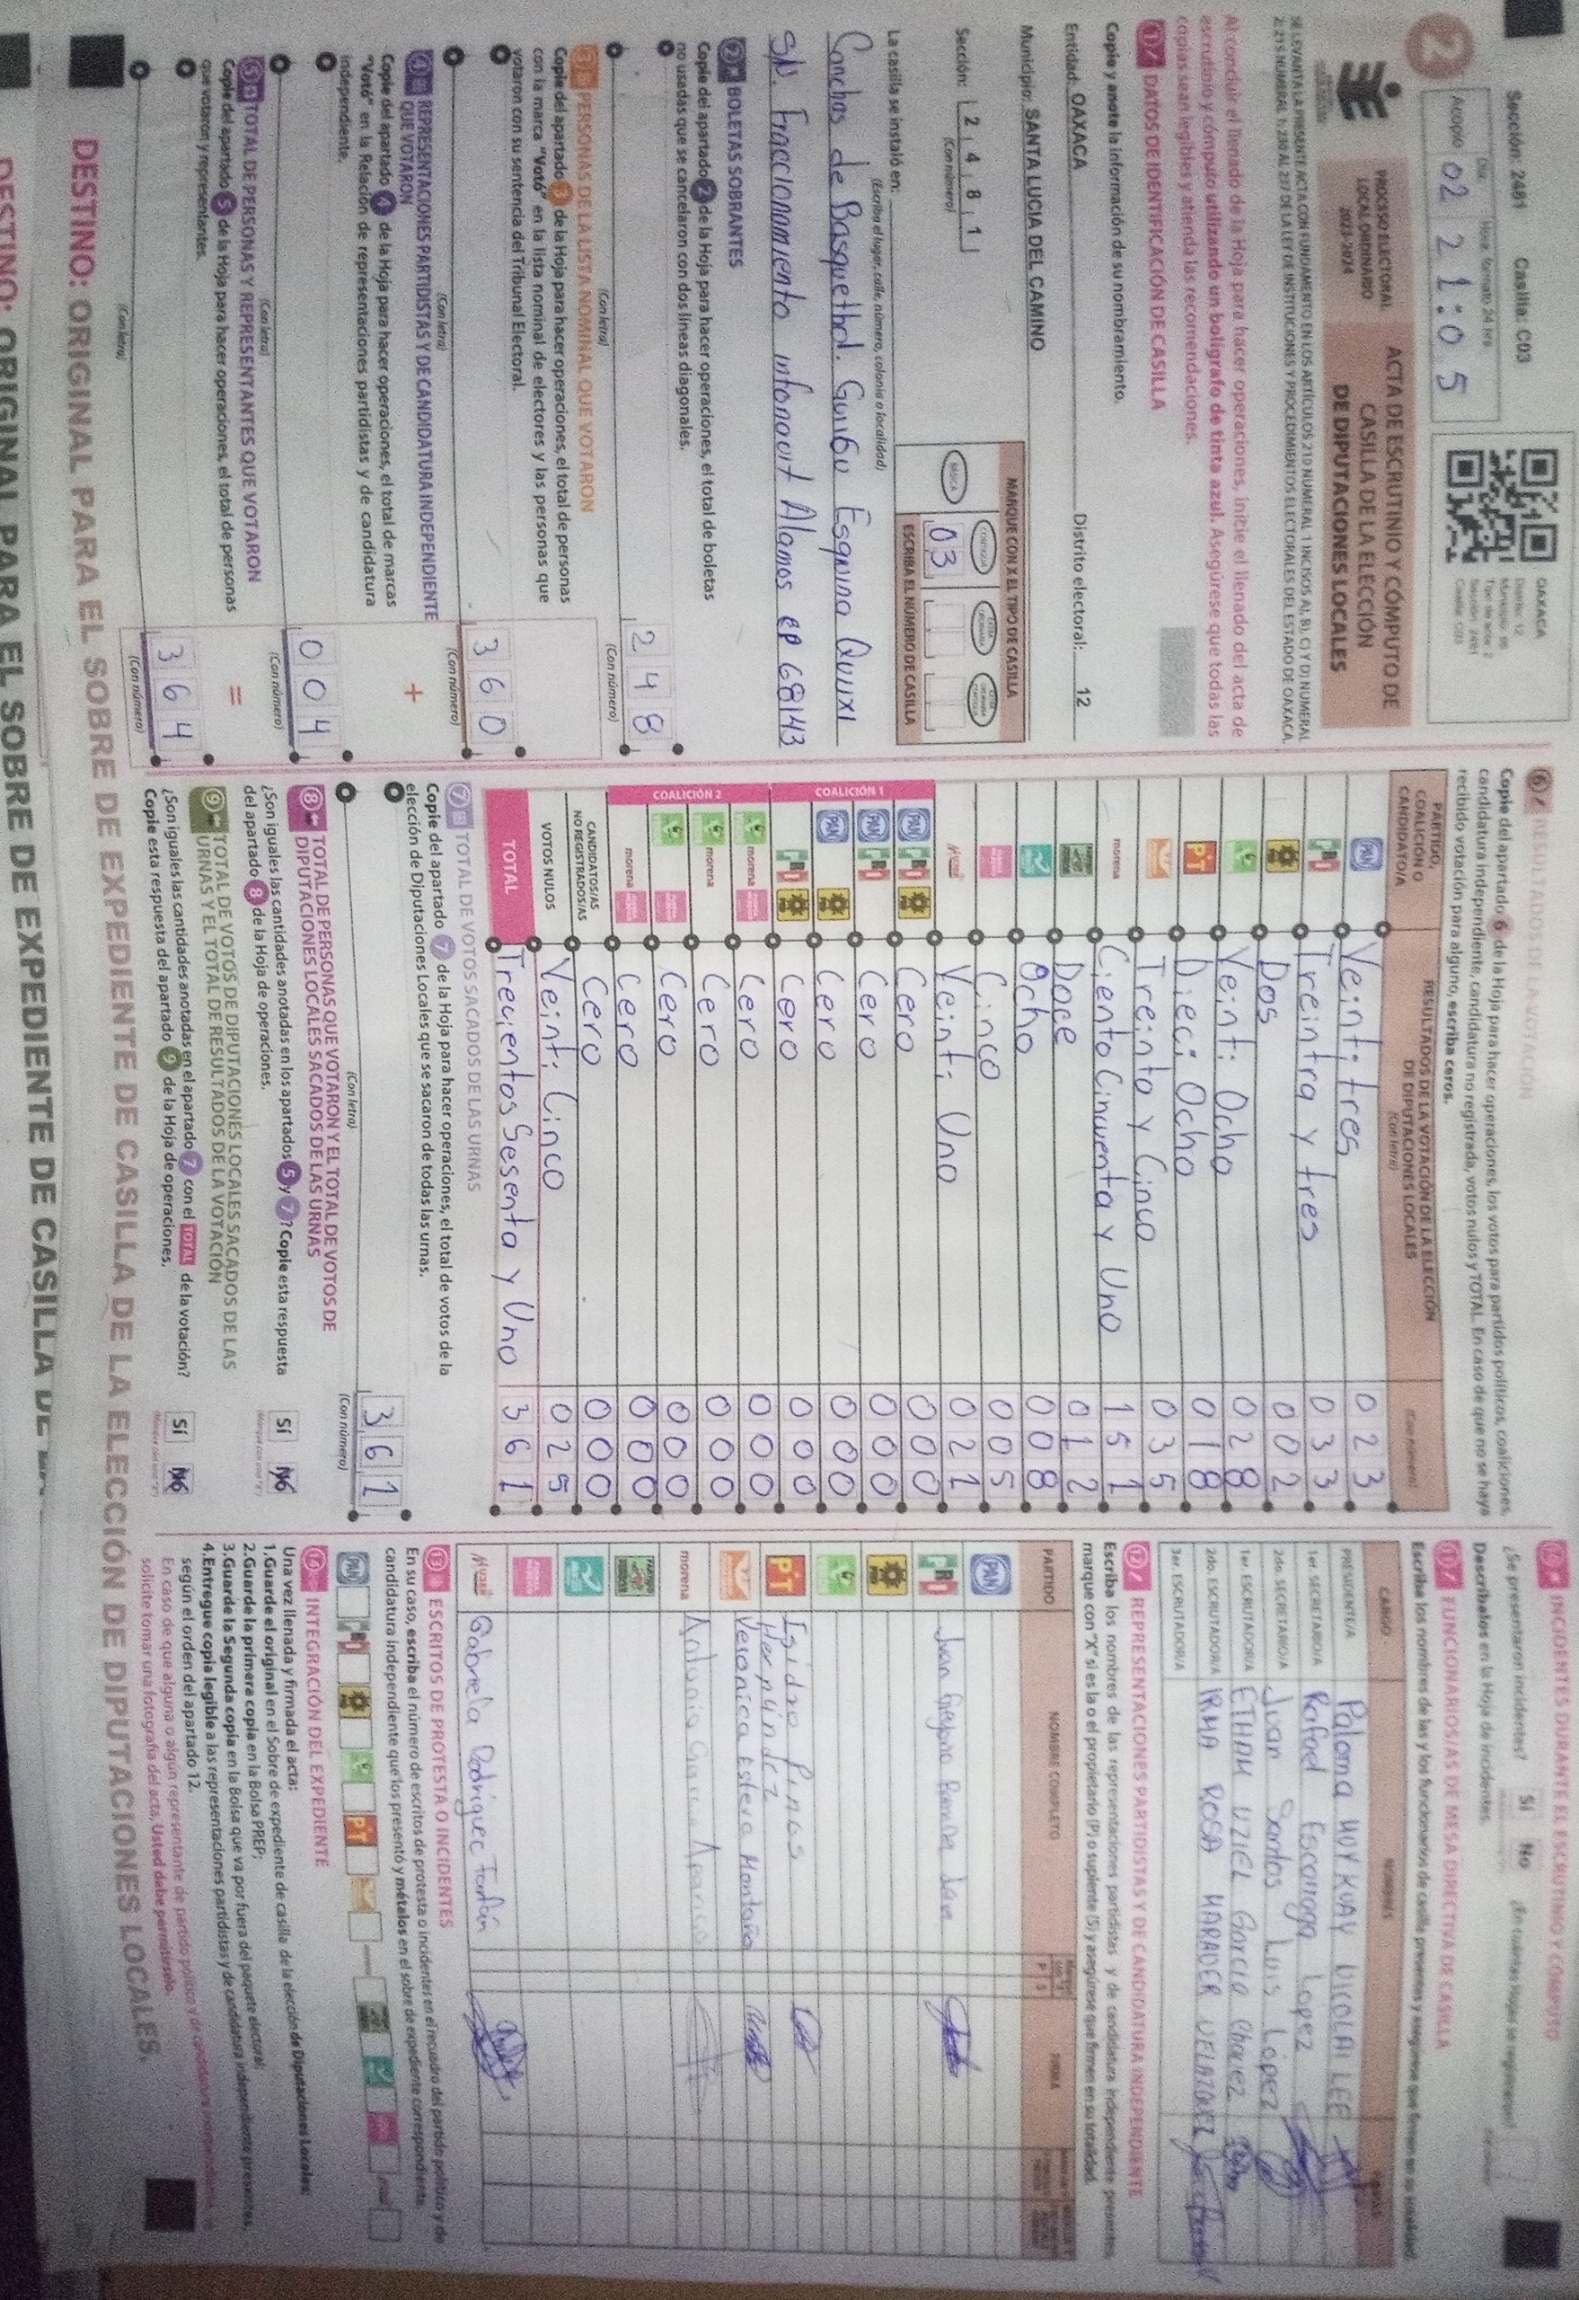 Sección: 2481 Casilla: C03
Día: Hora: formato 24 hrs
Acopio 02 21:05
OAXACA
Distrito: 12
Tipo de acta: 2
Sección: 2481
Casilla: C03
2
PROCESO ELECTORAL
LOCAL ORDINARIO
2023-2024
ACTA DE ESCRUTINIO Y CÓMPUTO DE
CASILLA DE LA ELECCIÓN
DE DIPUTACIONES LOCALES
SE LEVANTA LA PRESENTE ACTA CON FUNDAMENTO EN LOS ARTÍCULOS 210 NUMERAL 1 INCISOS A), B), C) Y D) NUMERAL
2; 219 NUMERAL 1; 230 AL 237 DE LA LEY DE INSTITUCIONES Y PROCEDIMIENTOS ELECTORALES DEL ESTADO DE OAXACA.
Al concluir el llenado de la Hoja para hacer operaciones, inicie el llenado del acta de
escrutinio y cómputo utilizando un bolígrafo de tinta azul. Asegúrese que todas las
copias sean legibles y atienda las recomendaciones.
1 DATOS DE IDENTIFICACIÓN DE CASILLA
Copie y anote la información de su nombramiento.
Entidad: OAXACA Distrito electoral: 12
Municipio: SANTA LUCIA DEL CAMINO
Sección: 2 4 8 1
(Con número)
MARQUE CON X EL TIPO DE CASILLA
BÁSICA CONTIGUA
03
ESCRIBA EL NÚMERO DE CASILLA
La casilla se instaló en:
(Escriba el lugar, calle, número, colonia o localidad)
Canchas de Basquetbol. Guiibu Esquina Quuxi
S/N. Fraccionamiento infonavit Alamos cp 68143
2 BOLETAS SOBRANTES
Copie del apartado 2 de la Hoja para hacer operaciones, el total de boletas
no usadas que se cancelaron con dos líneas diagonales.
248
(Con letra) (Con número)
3 PERSONAS DE LA LISTA NOMINAL QUE VOTARON
Copie del apartado 3 de la Hoja para hacer operaciones, el total de personas
con la marca "Votó" en la lista nominal de electores y las personas que
votaron con su sentencia del Tribunal Electoral.
360
(Con letra) (Con número)
+
4 REPRESENTACIONES PARTIDISTAS Y DE CANDIDATURA INDEPENDIENTE
QUE VOTARON
Copie del apartado 4 de la Hoja para hacer operaciones, el total de marcas
"Votó" en la Relación de representaciones partidistas y de candidatura
independiente.
004
(Con letra) (Con número)
=
5 TOTAL DE PERSONAS Y REPRESENTANTES QUE VOTARON
Copie del apartado 5 de la Hoja para hacer operaciones, el total de personas
que votaron y representantes.
364
(Con letra) (Con número)
6 RESULTADOS DE LA VOTACIÓN
Copie del apartado 6 de la Hoja para hacer operaciones, los votos para partidos políticos, coaliciones,
candidatura independiente, candidatura no registrada, votos nulos y TOTAL. En caso de que no se haya
recibido votación para alguno, escriba ceros.
PARTIDO, COALICIÓN O CANDIDATO/A
RESULTADOS DE LA VOTACIÓN DE LA ELECCIÓN DE DIPUTACIONES LOCALES
(Con letra) (Con número)
PAN Veinti tres 023
PRI Treintra y tres 033
PRD Dos 002
Veinti Ocho 028
PT Dieci Ocho 018
Treinta y Cinco 035
morena Ciento Cincuenta y Uno 151
Doce 012
Ocho 008
Cinco 005
Veinti Uno 021
COALICIÓN 1
PAN PRI PRD Cero 000
PAN PRI Cero 000
PAN PRD Cero 000
PRI PRD Cero 000
COALICIÓN 2
morena Cero 000
morena Cero 000
Cero 000
morena Cero 000
CANDIDATOS/AS NO REGISTRADOS/AS Cero 000
VOTOS NULOS Veinti Cinco 025
TOTAL Trecientos Sesenta y Uno 361
7 TOTAL DE VOTOS SACADOS DE LAS URNAS
Copie del apartado 7 de la Hoja para hacer operaciones, el total de votos de la
elección de Diputaciones Locales que se sacaron de todas las urnas.
361
(Con letra) (Con número)
8 TOTAL DE PERSONAS QUE VOTARON Y EL TOTAL DE VOTOS DE
DIPUTACIONES LOCALES SACADOS DE LAS URNAS
¿Son iguales las cantidades anotadas en los apartados 5 y 7? Copie esta respuesta
del apartado 8 de la Hoja de operaciones. SÍ NO
9 TOTAL DE VOTOS DE DIPUTACIONES LOCALES SACADOS DE LAS
URNAS Y EL TOTAL DE RESULTADOS DE LA VOTACIÓN
¿Son iguales las cantidades anotadas en el apartado 7 con el TOTAL de la votación?
Copie esta respuesta del apartado 9 de la Hoja de operaciones. SÍ NO
INCIDENTES DURANTE EL ESCRUTINIO Y CÓMPUTO
¿Se presentaron incidentes? Sí No
Descríbalos en la Hoja de incidentes.
11 FUNCIONARIOS/AS DE MESA DIRECTIVA DE CASILLA
Escriba los nombres de las y los funcionarios de casilla presentes y asegúrese que firmen en su totalidad.
CARGO NOMBRES FIRMAS
PRESIDENTE/A Paloma MOY KUAY DICOLAI LEE
1er. SECRETARIO/A Rafael Escarraga Lopez
2do. SECRETARIO/A Juan Santos Luis López
1er. ESCRUTADOR/A ETHAN UZIEL Garcia Chavez
2do. ESCRUTADOR/A IRMA ROSA VELAZQUEZ
3er. ESCRUTADOR/A
12 REPRESENTACIONES PARTIDISTAS Y DE CANDIDATURA INDEPENDIENTE
Escriba los nombres de las representaciones partidistas y de candidatura independiente presentes,
marque con "X" si es la o el propietario (P) o suplente (S) y asegúrese que firmen en su totalidad.
PARTIDO NOMBRE COMPLETO P S FIRMA
PAN
PRI Juan
PRD
PT Isidro Pinas Hernández
Veronica Estera Montaño
morena Antonio Garcia Aparicio
Gabriela Rodriguez Farfán
13 ESCRITOS DE PROTESTA O INCIDENTES
En su caso, escriba el número de escritos de protesta o incidentes en el recuadro del partido político y de
candidatura independiente que los presentó y métalos en el sobre de expediente correspondiente.
PAN PRI PRD PT
14 INTEGRACIÓN DEL EXPEDIENTE
Una vez llenada y firmada el acta:
1.Guarde el original en el Sobre de expediente de casilla de la elección de Diputaciones Locales;
2.Guarde la primera copia en la Bolsa PREP;
3.Guarde la Segunda copia en la Bolsa que va por fuera del paquete electoral;
4.Entregue copia legible a las representaciones partidistas y de candidatura independiente presentes,
según el orden del apartado 12.
En caso de que alguna o algún representante de partido político y de candidatura independiente
solicite tomar una fotografía del acta, Usted debe permitírselo.
DESTINO: ORIGINAL PARA EL SOBRE DE EXPEDIENTE DE CASILLA DE LA ELECCIÓN DE DIPUTACIONES LOCALES.
DESTINO: ORIGINAL PARA EL SOBRE DE EXPEDIENTE DE CASILLA